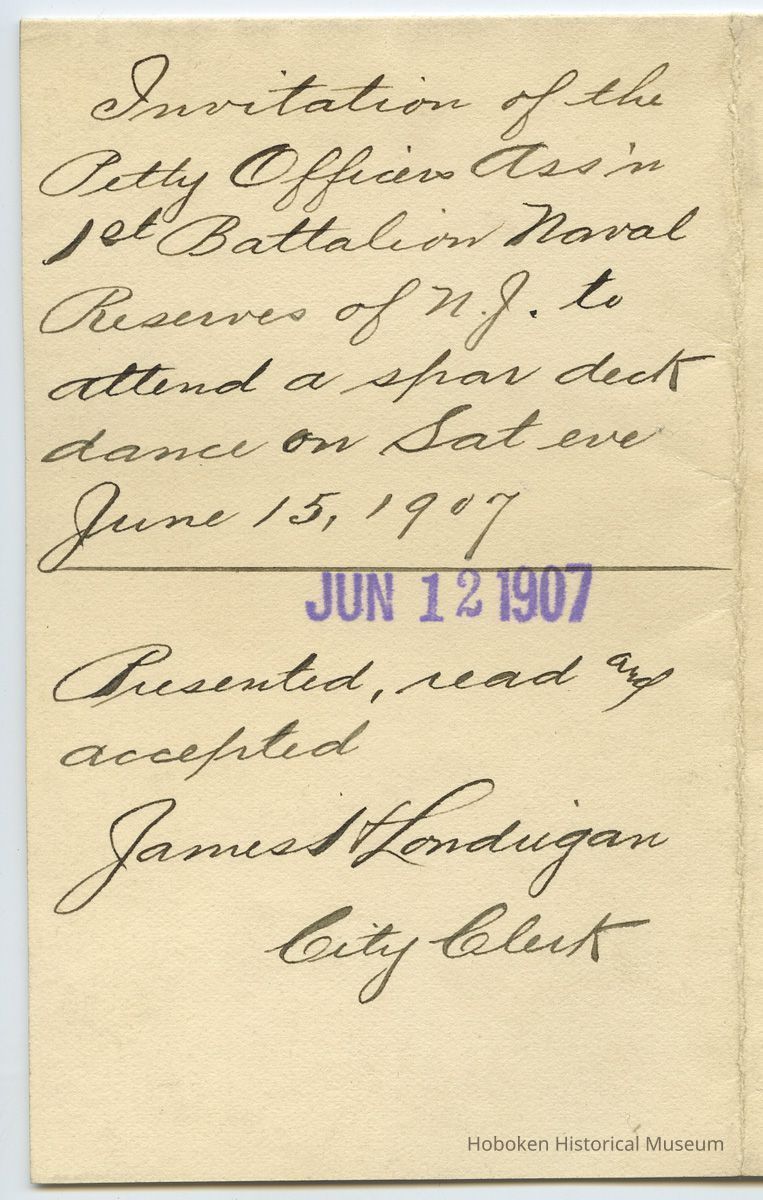 Invitation of the
Petty Officers Ass'n
1st Battalion Naval
Reserves of N.J. to
attend a spar deck
dance on Sat eve
June 15, 1907
JUN 12 1907
Presented, read and
accepted
James H Londrigan
City Clerk
Hoboken Historical Museum